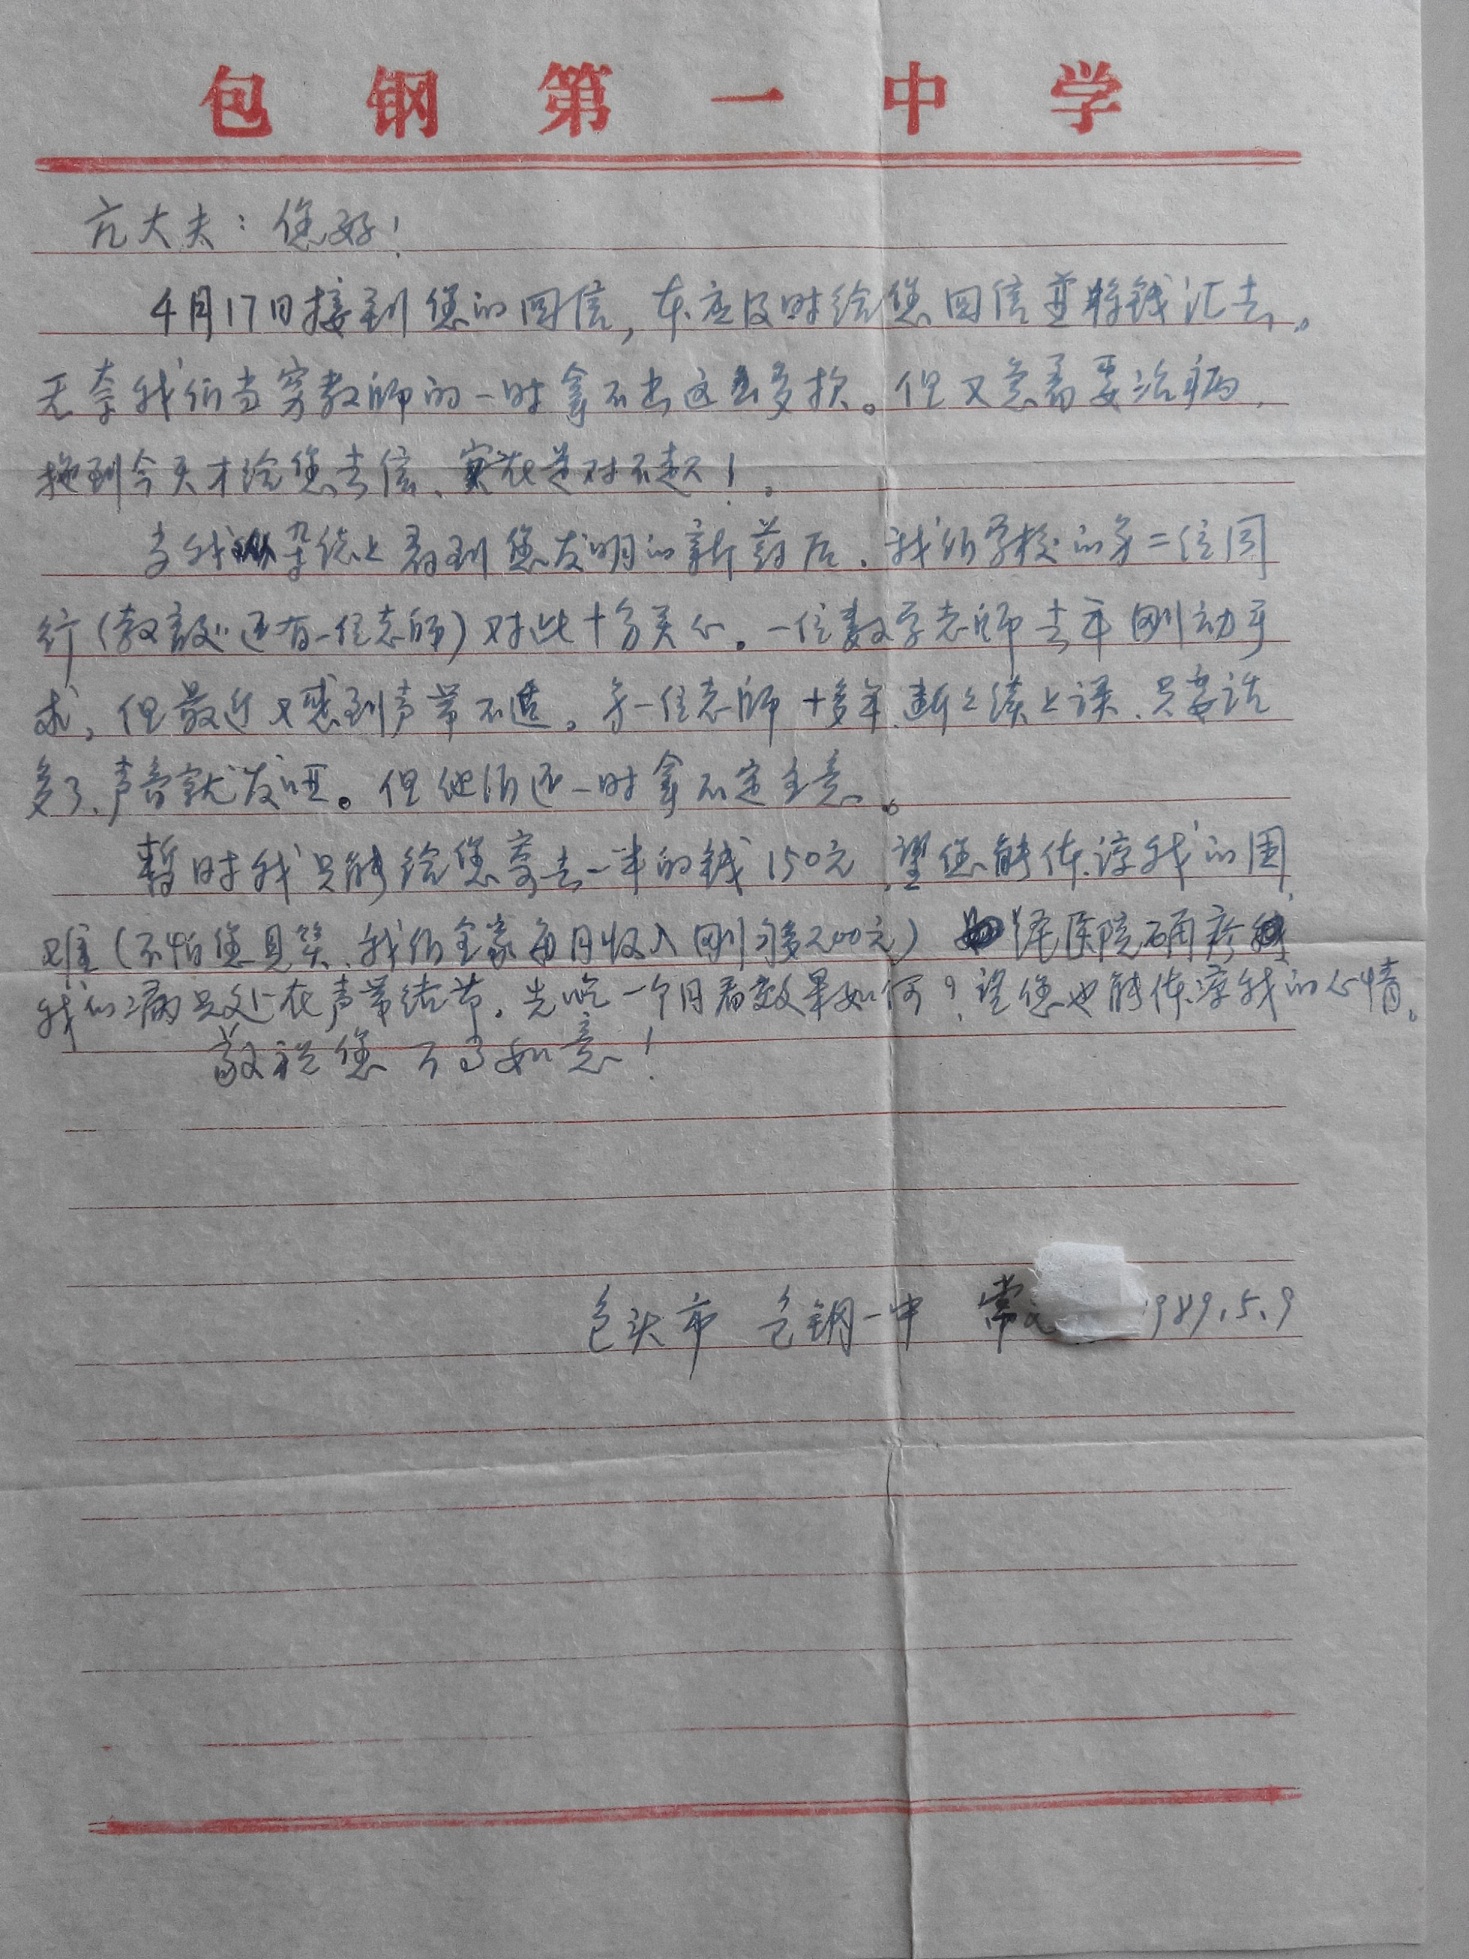 包钢第一中学
亢大夫：您好！
4月17日接到您的回信，本应及时给您回信并将钱汇去。
无奈我们当穷教师的一时拿不出这么多款。但又急需要治病，
拖到今天才给您去信、实在是对不起！。
当我从杂志上看到您发明的新药后，我们学校的另二位同
行（教高以还有一位老师）对此十分关心。一位数学老师去年刚动手
术，但最近又感到声带不适。另一位老师十多年断断续续上课，只要话
多了、声音就发哑。但他们还一时拿不定主意。
暂时我只能给您寄去一半的钱150元，望您能体谅我的困
难（不怕您见笑、我们全家每月收入刚够200元）经医院确诊
我的病只处在声带结节。先吃一个月看效果如何？望您也能体谅我的心情。
敬祝您 万事如意！
包头市 包钢一中 常 1989.5.9